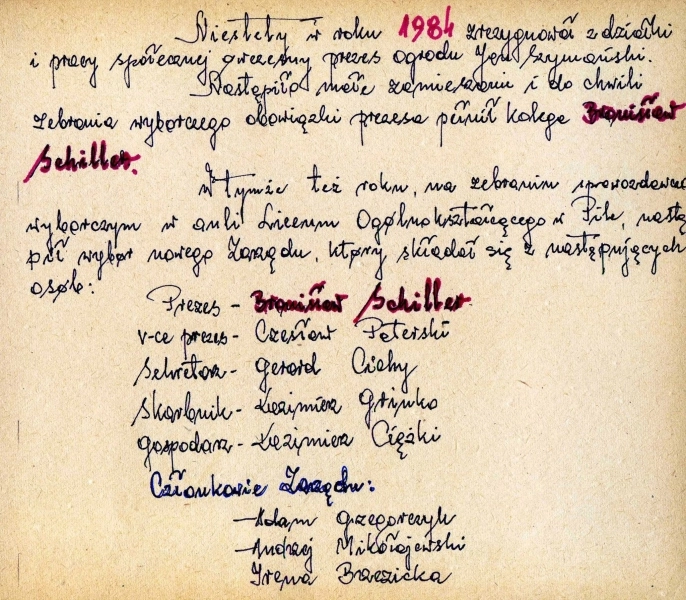 Niestety w roku 1984 zrezygnował z działki
i pracy społecznej ówczesny prezes ogrodu Jan Szymański.
Nastąpiło małe zamieszanie i do chwili
zebrania wyborczego obowiązki prezesa pełnił kolega Bronisław
Schiller.
W tymże też roku, na zebraniu sprawozdawczo
wyborczym w auli Liceum Ogólnokształcącego w Pile, nastą
pił wybór nowego Zarządu, który składał się z następujących
osób:
Prezes - Bronisław Schiller
v-ce prezes - Czesław Paterski
Sekretarz - Gerard Cichy
Skarbnik - Kazimierz Grinko
Gospodarz - Kazimierz Ciężki
Członkowie Zarządu:
- Adam Grzegorczyk
- Andrzej Mikołajewski
Irena Brzezicka